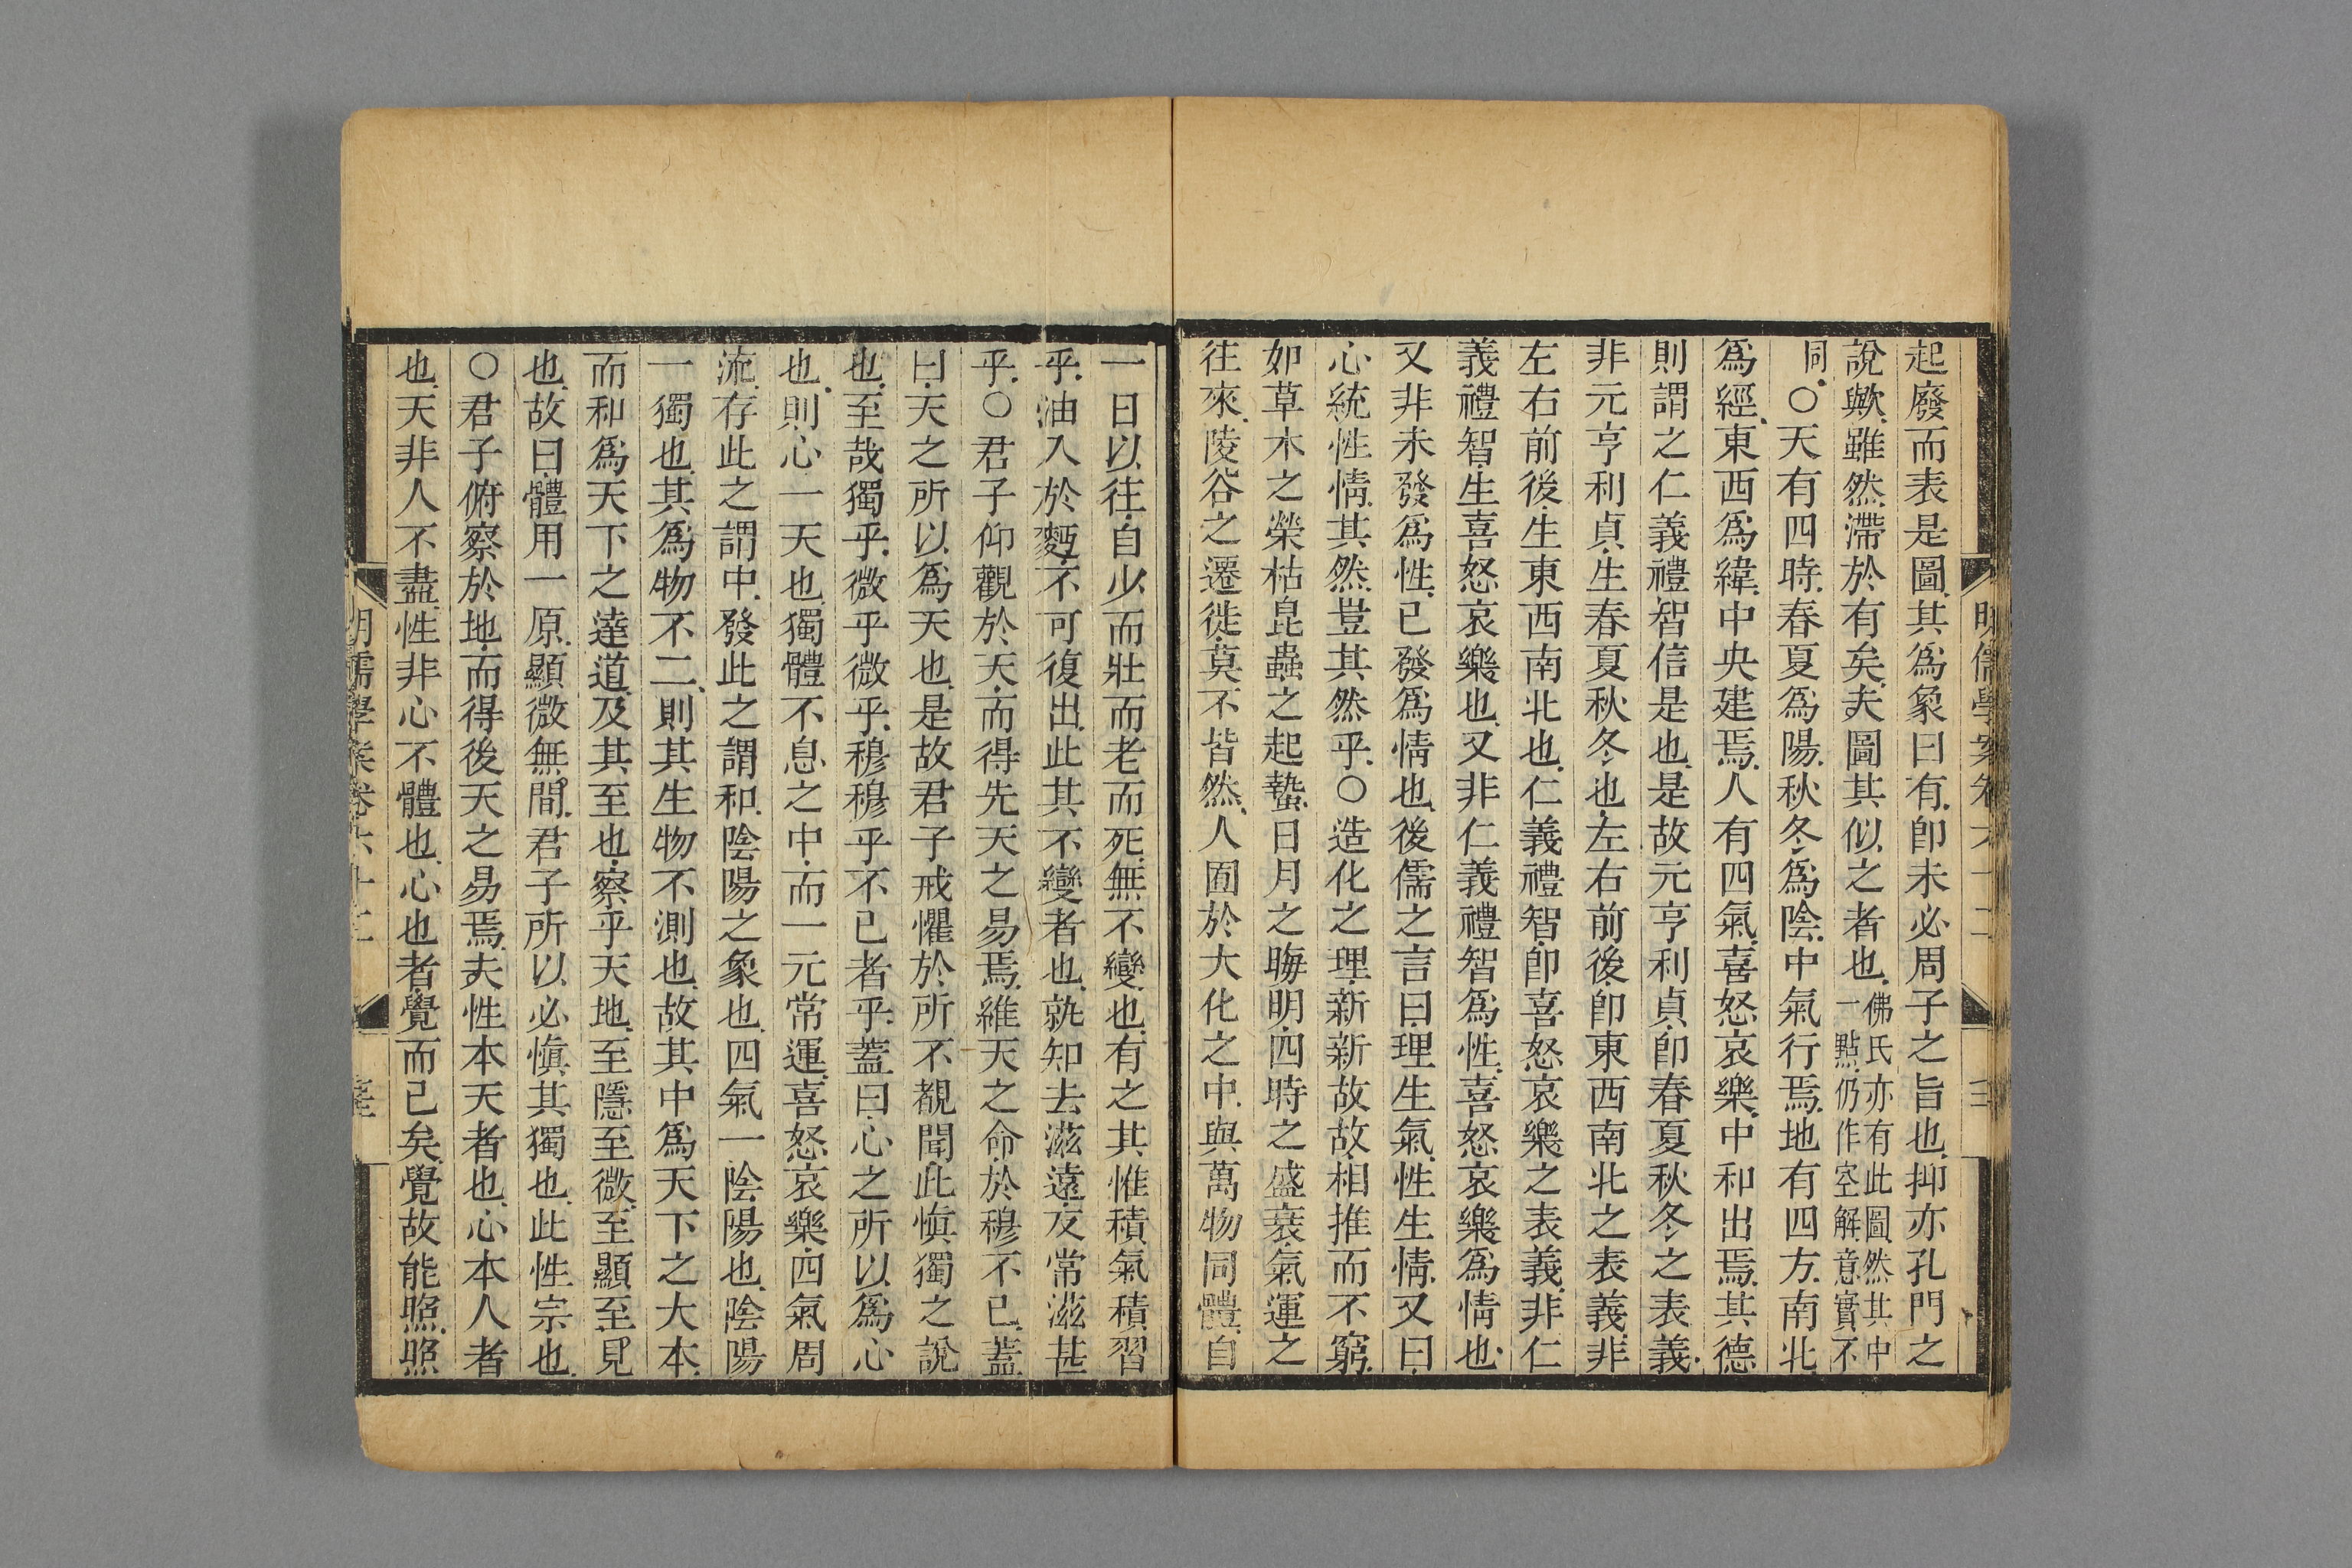 起廢而表是圖.其爲象曰有.卽未必周子之旨也.抑亦孔門之
說歟.雖然.滯於有矣.夫圖其似之者也.佛氏亦有此圖.然其中一點.仍作空解.意實不
同.○天有四時.春夏爲陽.秋冬爲陰.中氣行焉.地有四方.南北
爲經.東西爲緯.中央建焉.人有四氣.喜怒哀樂.中和出焉.其德
則謂之仁義禮智信是也.是故元亨利貞.卽春夏秋冬之表義.
非元亨利貞.生春夏秋冬也.左右前後.卽東西南北之表義.非
左右前後.生東西南北也.仁義禮智.卽喜怒哀樂之表義.非仁
義禮智.生喜怒哀樂也.又非仁義禮智爲性.喜怒哀樂爲情也.
又非未發爲性.已發爲情也.後儒之言曰.理生氣.性生情.又曰.
心統性情.其然.豈其然乎.○造化之理.新新故故.相推而不窮.
如草木之榮枯.昆蟲之起蟄.日月之晦明.四時之盛衰.氣運之
往來.陵谷之遷徙.莫不皆然.人囿於大化之中.與萬物同體.自
一日以往.自少而壯而老而死.無不變也.有之.其惟積氣積習
乎.油入於麪.不可復出.此其不變者也.孰知去滋遠.反常滋甚
乎.○君子仰觀於天.而得先天之易焉.維天之命.於穆不已.蓋
曰.天之所以爲天也.是故君子戒懼於所不覩聞.此愼獨之說
也.至哉獨乎.微乎微乎.穆穆乎不已者乎.蓋曰.心之所以爲心
也.則心一天也.獨體不息之中.而一元常運.喜怒哀樂.四氣周
流.存此之謂中.發此之謂和.陰陽之象也.四氣一陰陽也.陰陽
一獨也.其爲物不二.則其生物不測也.故其中爲天下之大本.
而和爲天下之達道.及其至也.察乎天地.至隱至微.至顯至見
也.故曰.體用一原.顯微無間.君子所以必愼其獨也.此性宗也.
○君子俯察於地.而得後天之易焉.夫性本天者也.心本人者
也.天非人不盡.性非心不體也.心也者.覺而已矣.覺故能照.照